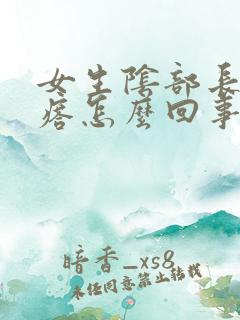 女生陰部長
痞怎麼回事
暗香_xs8
未经同意禁止转载